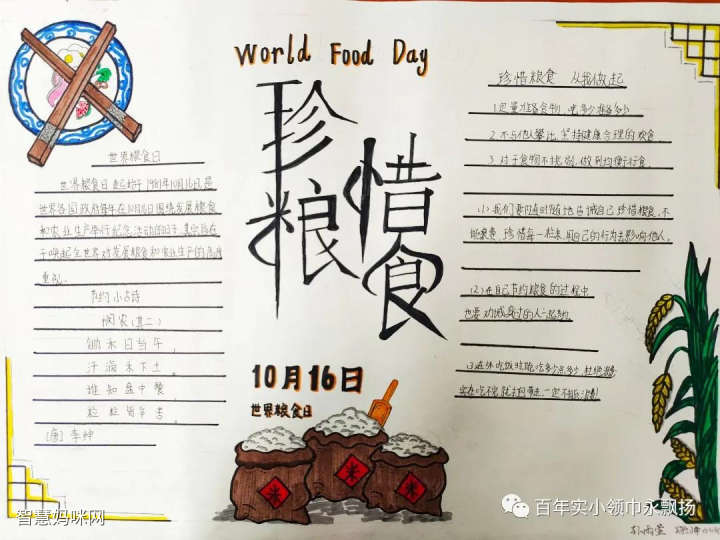 World Food Day
珍惜
粮食
世界粮食日
世界粮食日 起始于1981年10月16日,是
世界各国政府每年在10月16日围绕发展粮食
和农业生产举行纪念活动的日子,其宗旨在
于唤起全世界对发展粮食和农业生产的高度
重视。
节约小古诗
悯农(其二)
锄禾日当午,
汗滴禾下土。
谁知盘中餐,
粒粒皆辛苦。
[唐] 李绅
10月16日
世界粮食日
米
米
米
珍惜粮食 从我做起
2.不与他人攀比,坚持健康合理的饮食
3.对于食物不挑剔,做到均衡饮食。
(1)我们要时时刻刻地告诫自己珍惜粮食,不
能浪费,珍惜每一粒米,用自己的行为去影响他人。
(2)在自己节约粮食的过程中
智慧妈咪网
百年实小领巾永飘扬